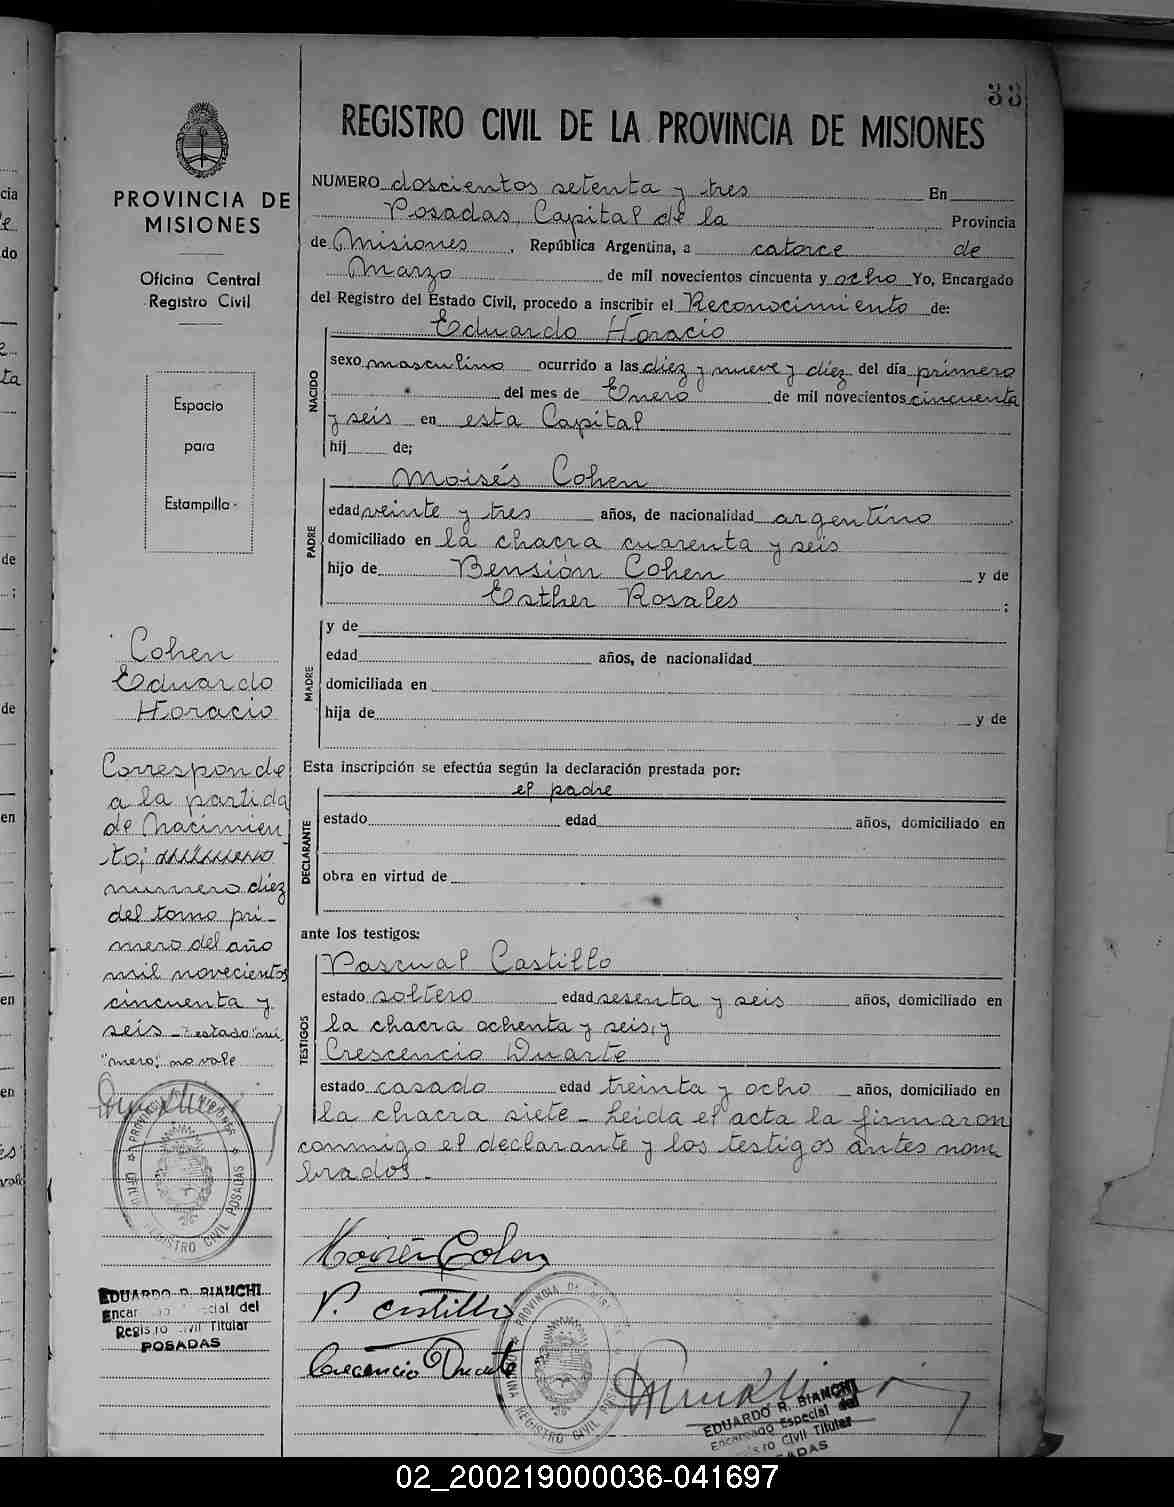 33
REGISTRO CIVIL DE LA PROVINCIA DE MISIONES
PROVINCIA DE
MISIONES
Oficina Central
Registro Civil
Espacio
para
Estampilla
NUMERO doscientos setenta y tres En
Posadas, Capital de la Provincia
de Misiones, República Argentina, a catorce de
Marzo de mil novecientos cincuenta y ocho Yo, Encargado
del Registro del Estado Civil, procedo a inscribir el Reconocimiento de:
Eduardo Horacio
NACIDO
sexo masculino ocurrido a las diez y nueve y diez del día primero
del mes de Enero de mil novecientos cincuenta
y seis en esta Capital
hij de;
Moisés Cohen
PADRE
edad veinte y tres años, de nacionalidad argentino
domiciliado en la chacra cuarenta y seis
hijo de Bensión Cohen y de
Esther Rosales ;
MADRE
y de
edad años, de nacionalidad
domiciliada en
hija de y de
Esta inscripción se efectúa según la declaración prestada por:
el padre
DECLARANTE
estado edad años, domiciliado en
obra en virtud de
ante los testigos:
Pascual Castillo
TESTIGOS
estado soltero edad sesenta y seis años, domiciliado en
la chacra ochenta y seis, y
Crescencio Duarte
estado casado edad treinta y ocho años, domiciliado en
la chacra siete - Leida el acta la firmaron
conmigo el declarante y los testigos antes nom
brados. -
Moisés Cohen
P. Castillo
Crecencio Duarte
EDUARDO R. BIANCHI
Encargado Especial del
Registro Civil Titular
POSADAS
Cohen
Eduardo
Horacio
Corresponde
a la partida
de Nacimien
to;
numero diez
del tomo pri-
mero del año
mil novecientos
cincuenta y
seis - Testado "nú
mero: no vale
EDUARDO R. BIANCHI
Encargado Especial del
Registro Civil Titular
POSADAS
02_200219000036-041697